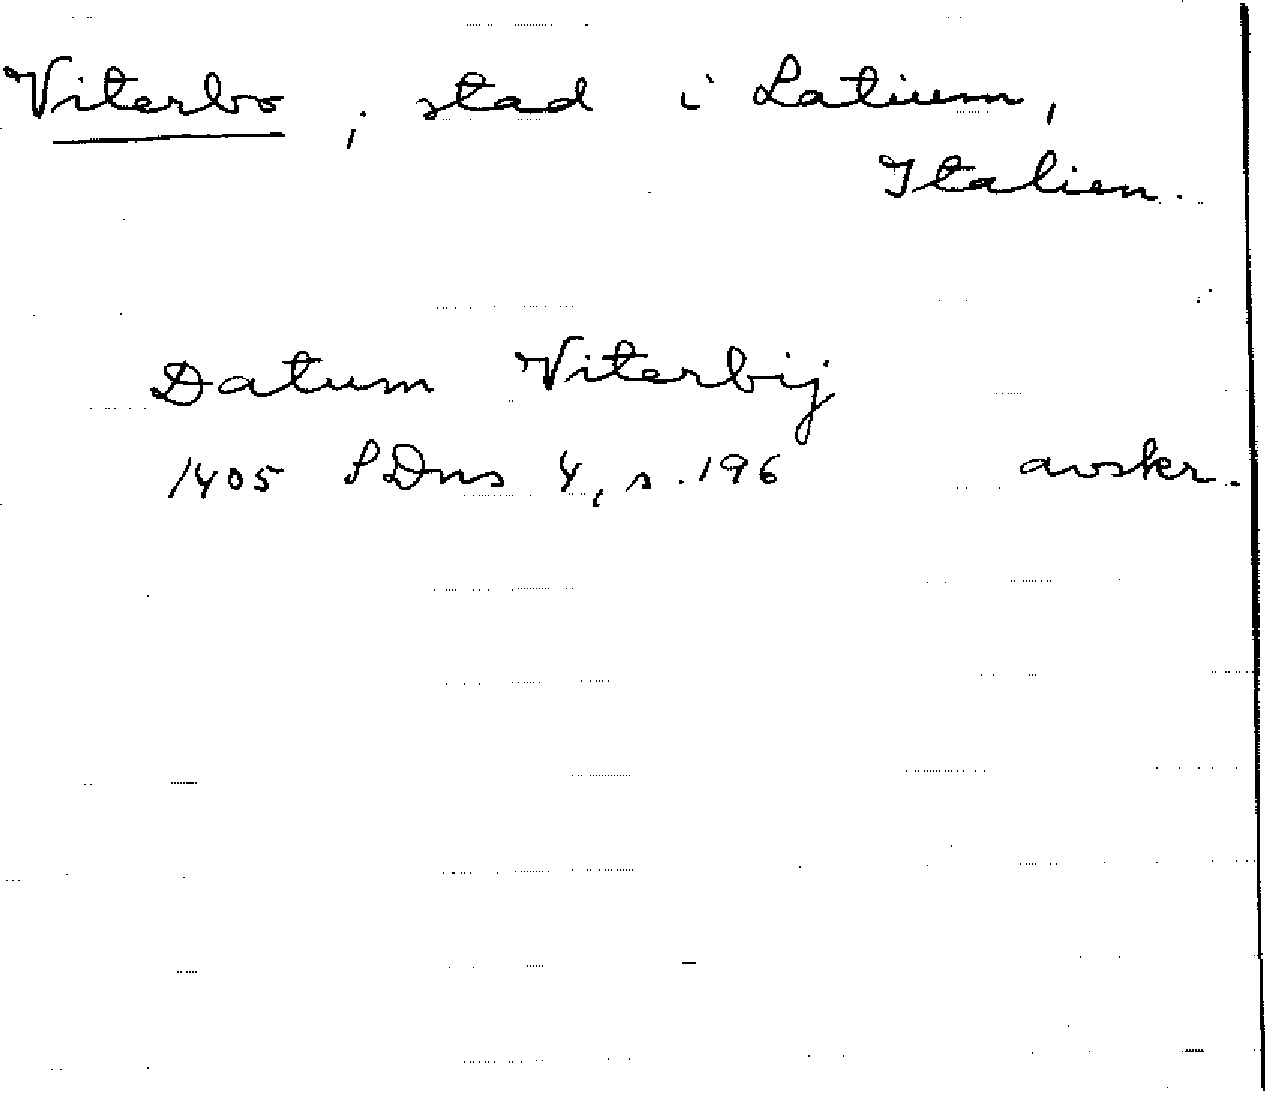 Viterbo, stad i Latium,
Italien.
Datum Viterbij
1405 SDns 4, s. 196 avskr.